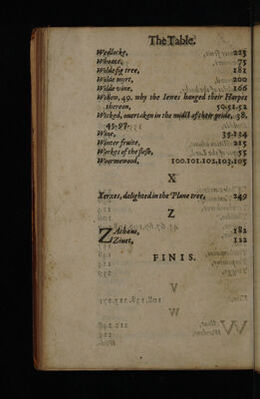 The Table.
Wedlocke, 223
Wheate, 75
Wilde fig tree, 181
Wilde myrt, 200
Wilde vine, 166
Willow, 49. why the Iewes hanged their Harpes
thereon, 50.51.52
Wicked, ouertaken in the midst of their pride, 38.
45.97.
Wine, 35.134
Winter fruite, 215
Workes of the flesh, 55
Woormewood, 100.101.102.103.105
X
Xerxes, delighted in the Plane tree, 249
Z
Zachæus, 182
Zeuxes, 122
FINIS.